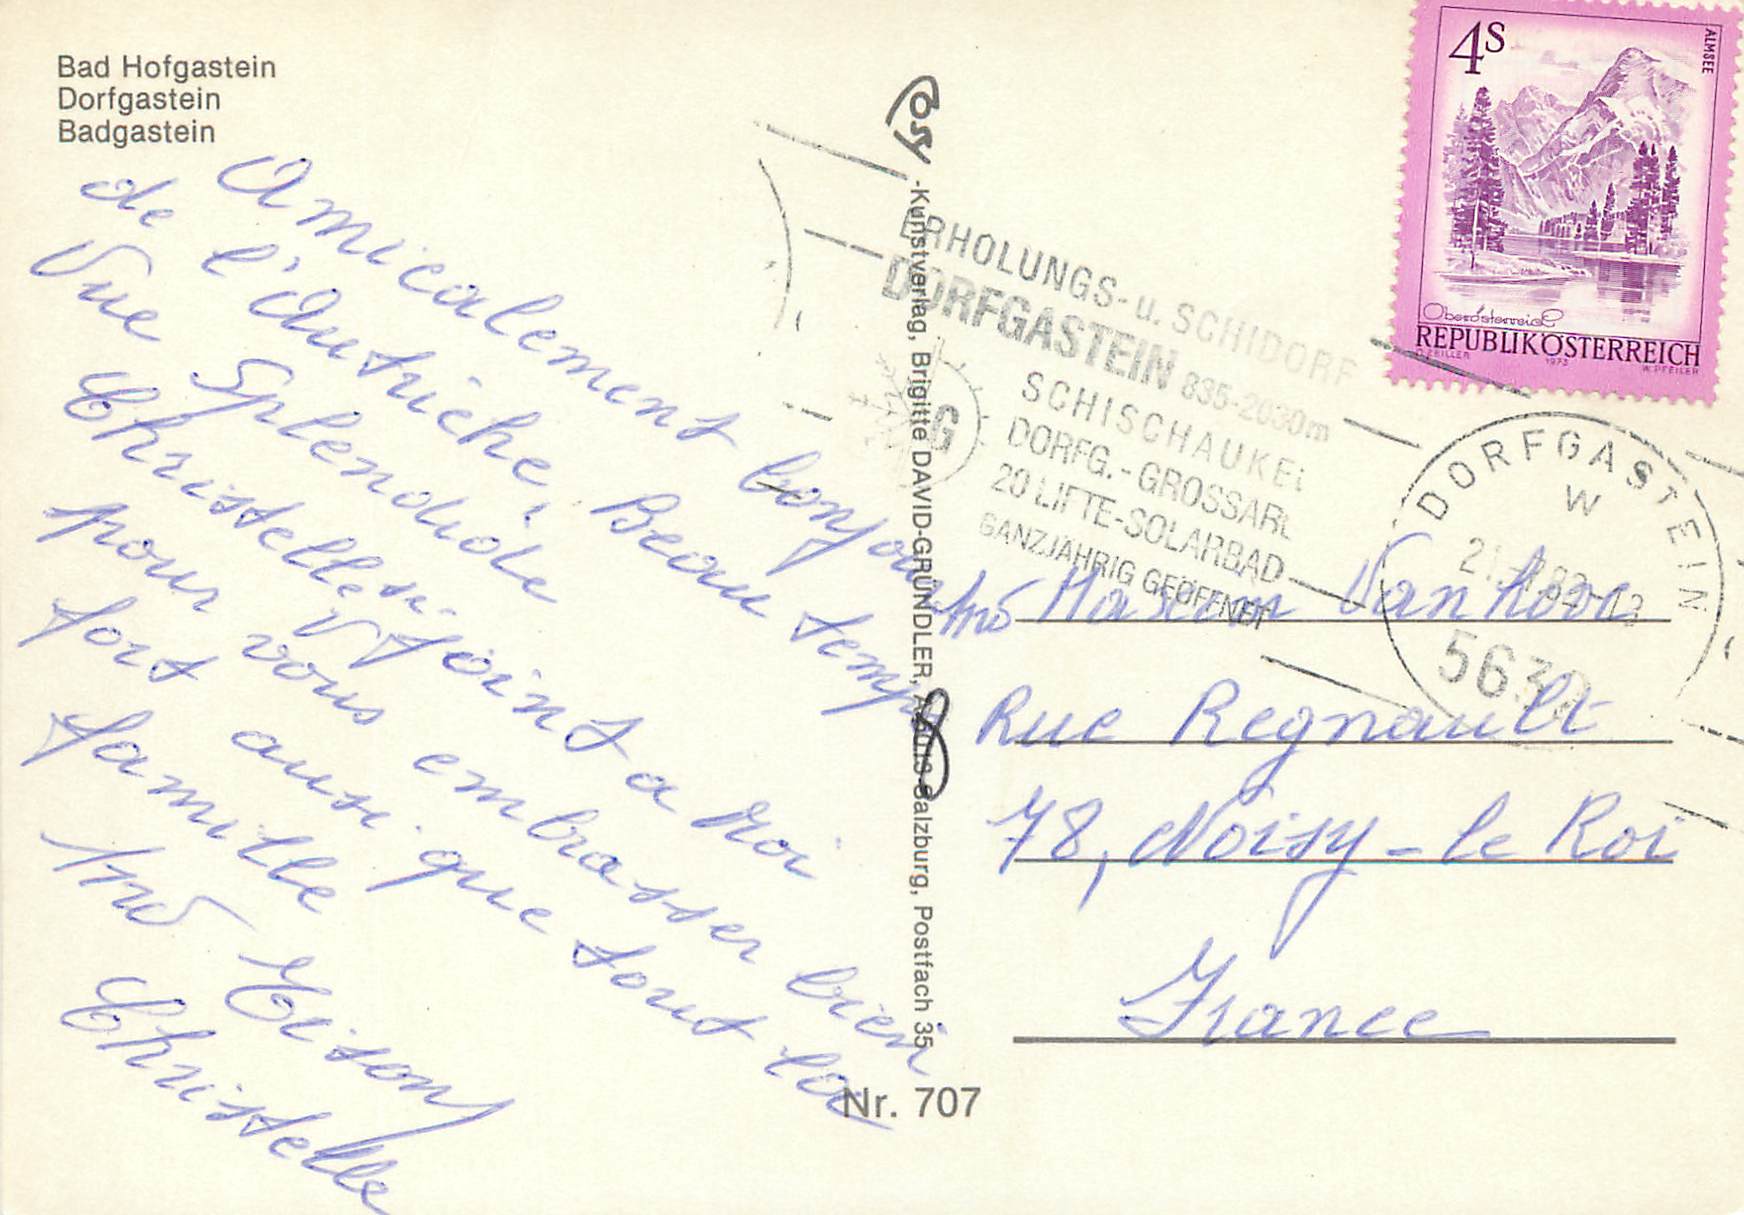 Bad Hofgastein
Dorfgastein
Badgastein
Amicalement bonjour
de l'Autriche, Beau temps
Vue Splendide
Christelle se joint a moi
pour vous embrasser bien
fort ausi que tout la
famille
Christelle
Cosy
-Kunstverlag, Brigitte DAVID-GRÜNDLER, Salzburg, Postfach 35
Nr. 707
ERHOLUNGS- u. SCHIDORF
DORFGASTEIN 835-2030m
SCHISCHAUKEL
DORFG.-GROSSARL
20 LIFTE-SOLARBAD
GANZJÄHRIG GEÖFFNET
G
4S
ALMSEE
Oberösterreich
REPUBLIK ÖSTERREICH
O. ZEILLER 1973 W. PFEILER
DORFGASTEIN
W
5632
Rue Regnault
78, Noisy-le Roi
France